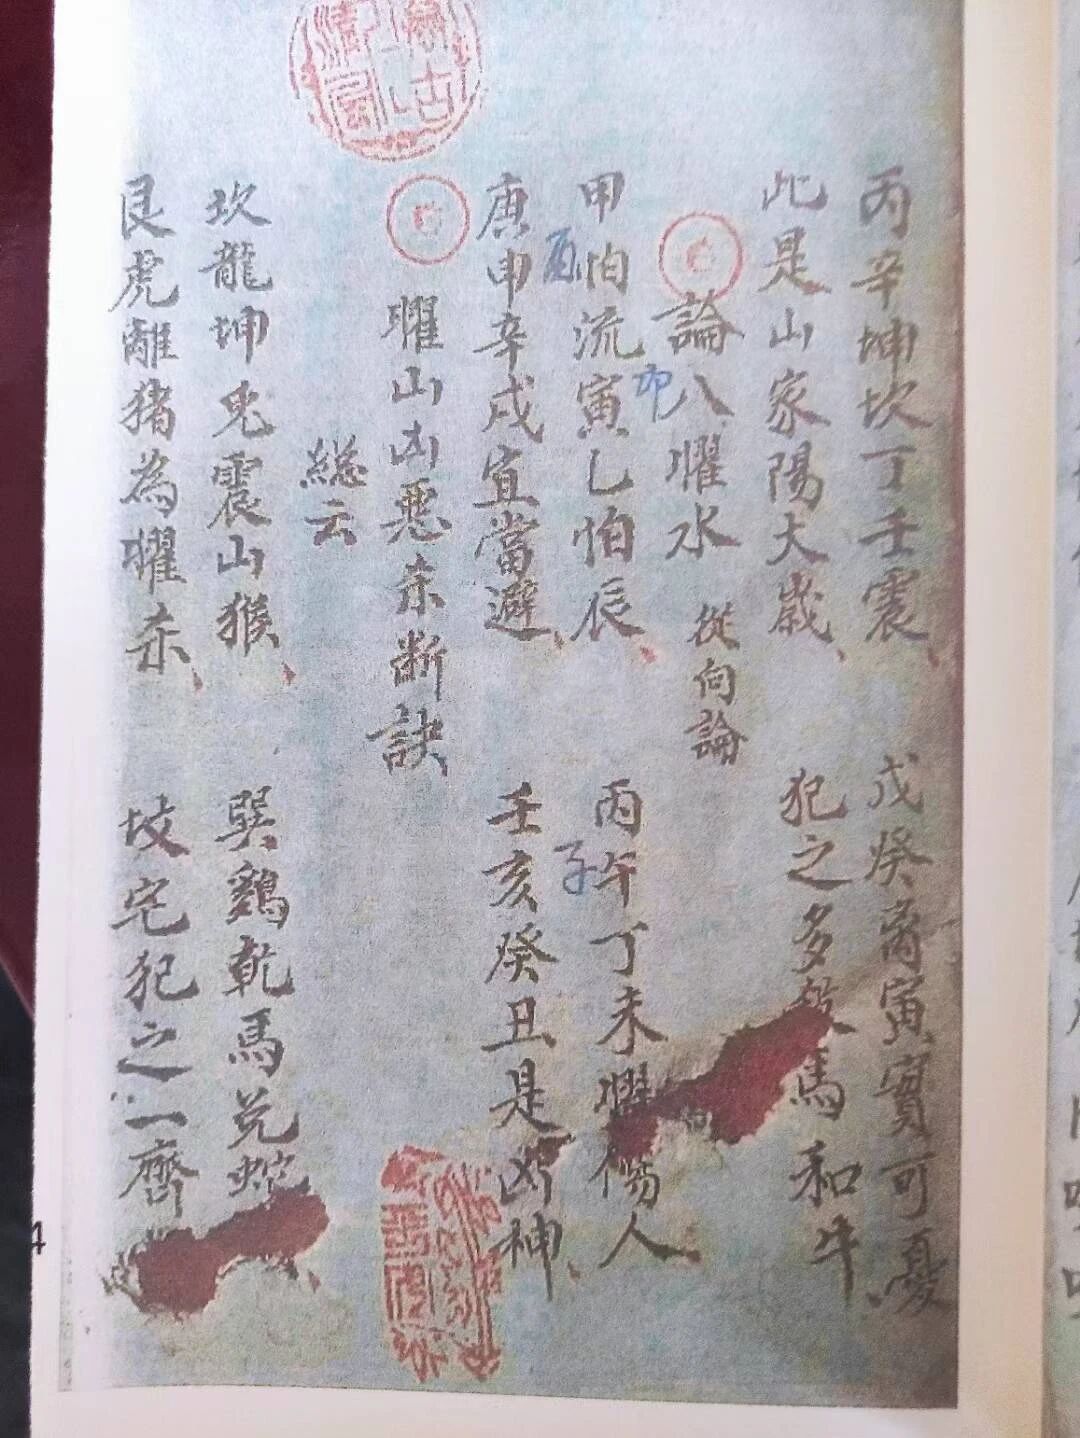 丙辛坤坎丁壬震、戊癸离寅實可憂
此是山家陽大歲、犯之多 馬和牛、
論八曜水 從向論
卯
甲怕流寅乙怕辰、丙午丁未曜 傷人、
酉
子
庚申辛戌宜當避、壬亥癸丑是凶神、
曜山凶惡杀断訣
總云
坎龍坤兎震山猴、巽鷄乾馬兑蛇
艮虎離猪為曜杀、坟宅犯之一齊
4